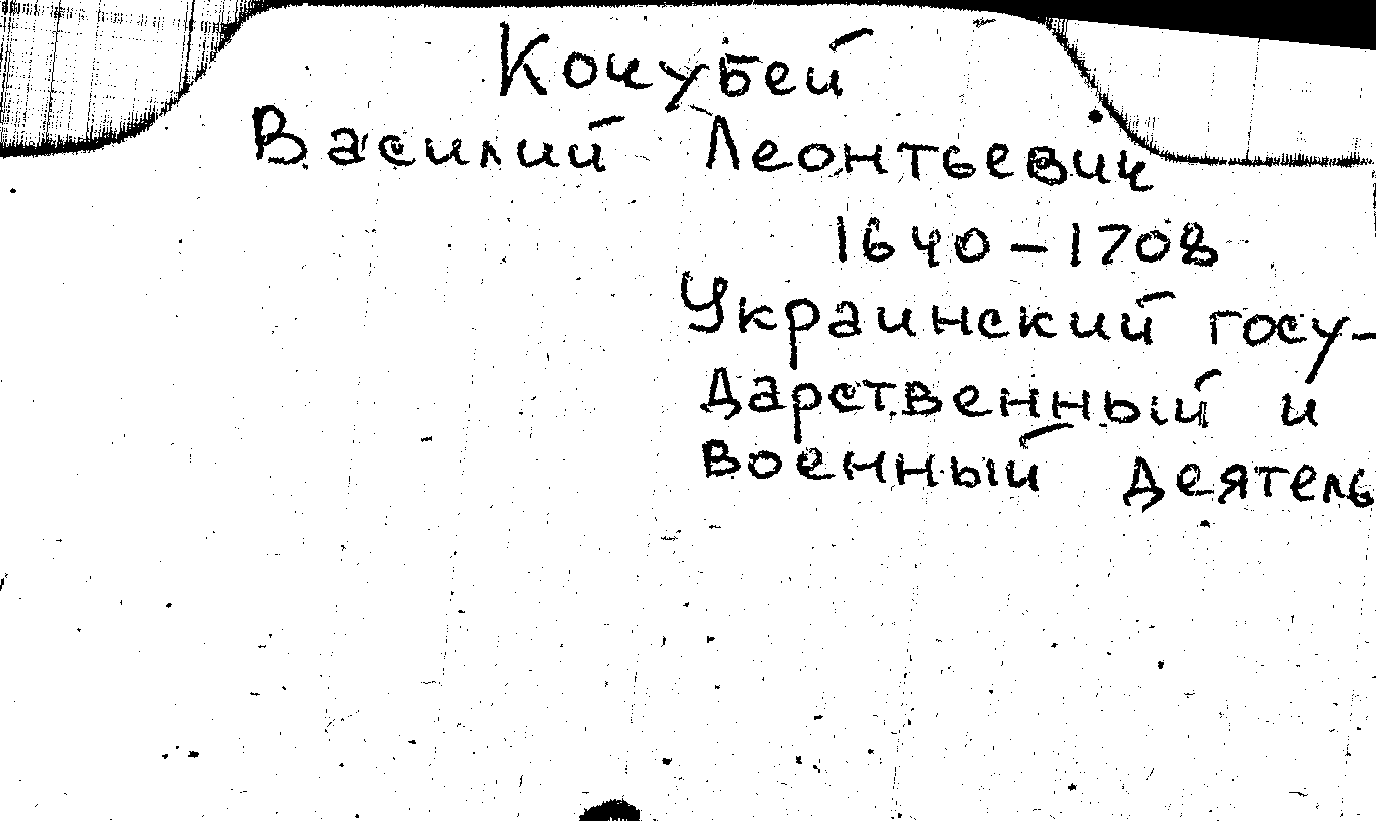 Кочубей
Василий Леонтьевич
1640-1708
Украинский госу-
дарственный и
военный деятель